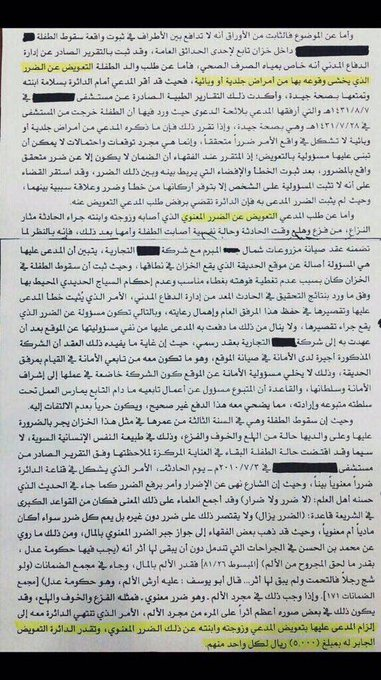 وأما عن الموضوع فالثابت من الأوراق أنه لا تدافع بين الأطراف في ثبوت واقعة سقوط الطفلة
داخل خزان تابع لإحدى الحدائق العامة، وقد ثبت بالتقرير الصادر عن إدارة
الدفاع المدني أنه خاص بمياه الصرف الصحي، فأما عن طلب والد الطفلة التعويض عن الضرر
الذي يخشى وقوعه بها من أمراض جلدية أو وبائية، فحيث قد أقر المدعي أمام الدائرة بسلامة ابنته
وتمتعها بصحة جيدة، وأكدت ذلك التقارير الطبية الصادرة عن مستشفى في
١٤٣١/٨/٧هـ والتي أرفقها المدعي بلائحة الدعوى حيث ورد فيها أن الطفلة خرجت من المستشفى
في ١٤٣١/٧/٢٨هـ وهي بصحة جيدة، وإذا تقرر ذلك فإن ما ذكره المدعي من أمراض جلدية أو
وبائية لا تشكل في واقع الأمر ضرراً متحققاً، وإنما هي مجرد توقعات واحتمالات لا يمكن أن
تبنى عليها مسؤولية بالتعويض؛ إذ المتقرر عند الفقهاء أن الضمان لا يكون إلا عن ضرر متحقق
واقع بالمضرور، بعد ثبوت الخطأ والإفضاء التي يربط بينه وبين ذلك الضرر، وقد استقر القضاء
على أنه لا تثبت المسؤولية على الشخص إلا بتوفر أركانها من خطأ وضرر وعلاقة سببية بينهما،
وحيث لم يثبت الضرر المدعى به فإن الدائرة تقضي برفض طلب المدعي التعويض عنه.
وأما عن طلب المدعي التعويض عن الضرر المعنوي الذي أصابه وزوجته وابنته جراء الحادثة مثار
النزاع، من فزع وهلع وقت الحادثة وحالة نفسية أصابت الطفلة وأمها بعد ذلك، فإنه بالنظر لما
تضمنه عقد صيانة مزروعات شمال المبرم مع شركة التجارية، يتبين أن المدعى عليها
هي المسؤولة أصالة عن موقع الحديقة الذي يقع الخزان في نطاقها، وحيث ثبت أن سقوط الطفلة في
الخزان كان بسبب عدم تغطية فوهته بغطاء مناسب وعدم إحكام السياج الحديدي المحيط بها
وفق ما ورد بنتائج التحقيق في الحادث المعد من إدارة الدفاع المدني، الأمر الذي يُثبت خطأ المدعى
عليها وتقصيرها في حفظ هذا المرفق العام وإهمال رعايته، وبالتالي تكون مسؤولة عن الضرر الذي
يقع جراء تقصيرها، ولا ينال من ذلك ما دفعت به المدعى عليها من نفي مسؤوليتها عن الموقع بعد أن
عهدت به إلى شركة التجارية بعقد رسمي، حيث إن غاية ما يفيده ذلك العقد أن الشركة
المذكورة أجيرة لدى الأمانة في صيانة الموقع، وهو ما تكون معه من تابعي الأمانة في القيام بمرفق
الحديقة، وذلك لا يخلي مسؤولية الأمانة عن الموقع كون الشركة خاضعة في عملها إلى إشراف
الأمانة وسلطانها، والقاعدة أن المتبوع مسؤول عن أعمال تابعيه ما دام التابع يمارس العمل تحت
سلطة متبوعه وإرادته، مما يضحي معه هذا الدفع غير صحيح، ويكون حرياً بعدم الالتفات إليه.
وحيث إن سقوط الطفلة وهي في السنة الثالثة من عمرها في مثل هذا الخزان يجر بالضرورة
عليها وعلى والديها حالة من الهلع والخوف والفزع، وذلك في طبيعة النفس الإنسانية السوية، لا
سيما وقد اقتضت حالة الطفلة البقاء في العناية المركزة لملاحظتها وفق التقرير الصادر من
مستشفى في ٢٠١٠/٧/٣م - يوم الحادثة -، الأمر الذي يشكل في قناعة الدائرة
ضرراً معنوياً بيناً، وحيث إن الشارع نهى عن الإضرار وأمر برفع الضرر كما جاء في الحديث الذي
حسنه أهل العلم: (لا ضرر ولا ضرار) وقد أجمع العلماء على ذلك المعنى فكان من القواعد الكبرى
في الشريعة قاعدة: (الضرر يزال) ولا يقتصر ذلك على ضرر دون غيره بل يعم كل ضرر سواء أكان
مادياً أم معنوياً، وحيث قد ذهب بعض الفقهاء إلى جواز جبر الضرر المعنوي بالمال، ومن ذلك ما روي
عن محمد بن الحسن في الجراحات التي تندمل دون أن يبقى لها أثر أنه (يجب فيها حكومة عدل،
بقدر ما لحق المجروح من الألم) [المبسوط ٨١/٢٦] فقدر الألم بالمال، وجاء في مجمع الضمانات (ولو
شج رجلاً فالتحمت ولم يبق لها أثر... قال أبو يوسف : عليه أرش الألم، وهو حكومة عدل) [مجمع
الضمانات ١٧١] وإذا وجب ذلك في مجرد الألم - وهو ضرر معنوي - فمثله الفزع والخوف والهلع، وقد
يكون ذلك في بعض صوره أعظم أثراً على المرء من مجرد الألم، الأمر الذي تنتهي الدائرة معه إلى
إلزام المدعى عليها بتعويض المدعي وزوجته وابنته عن ذلك الضرر المعنوي، وتقدر الدائرة التعويض
الجابر له بمبلغ (٥,٠٠٠) ريال لكل واحد منهم.